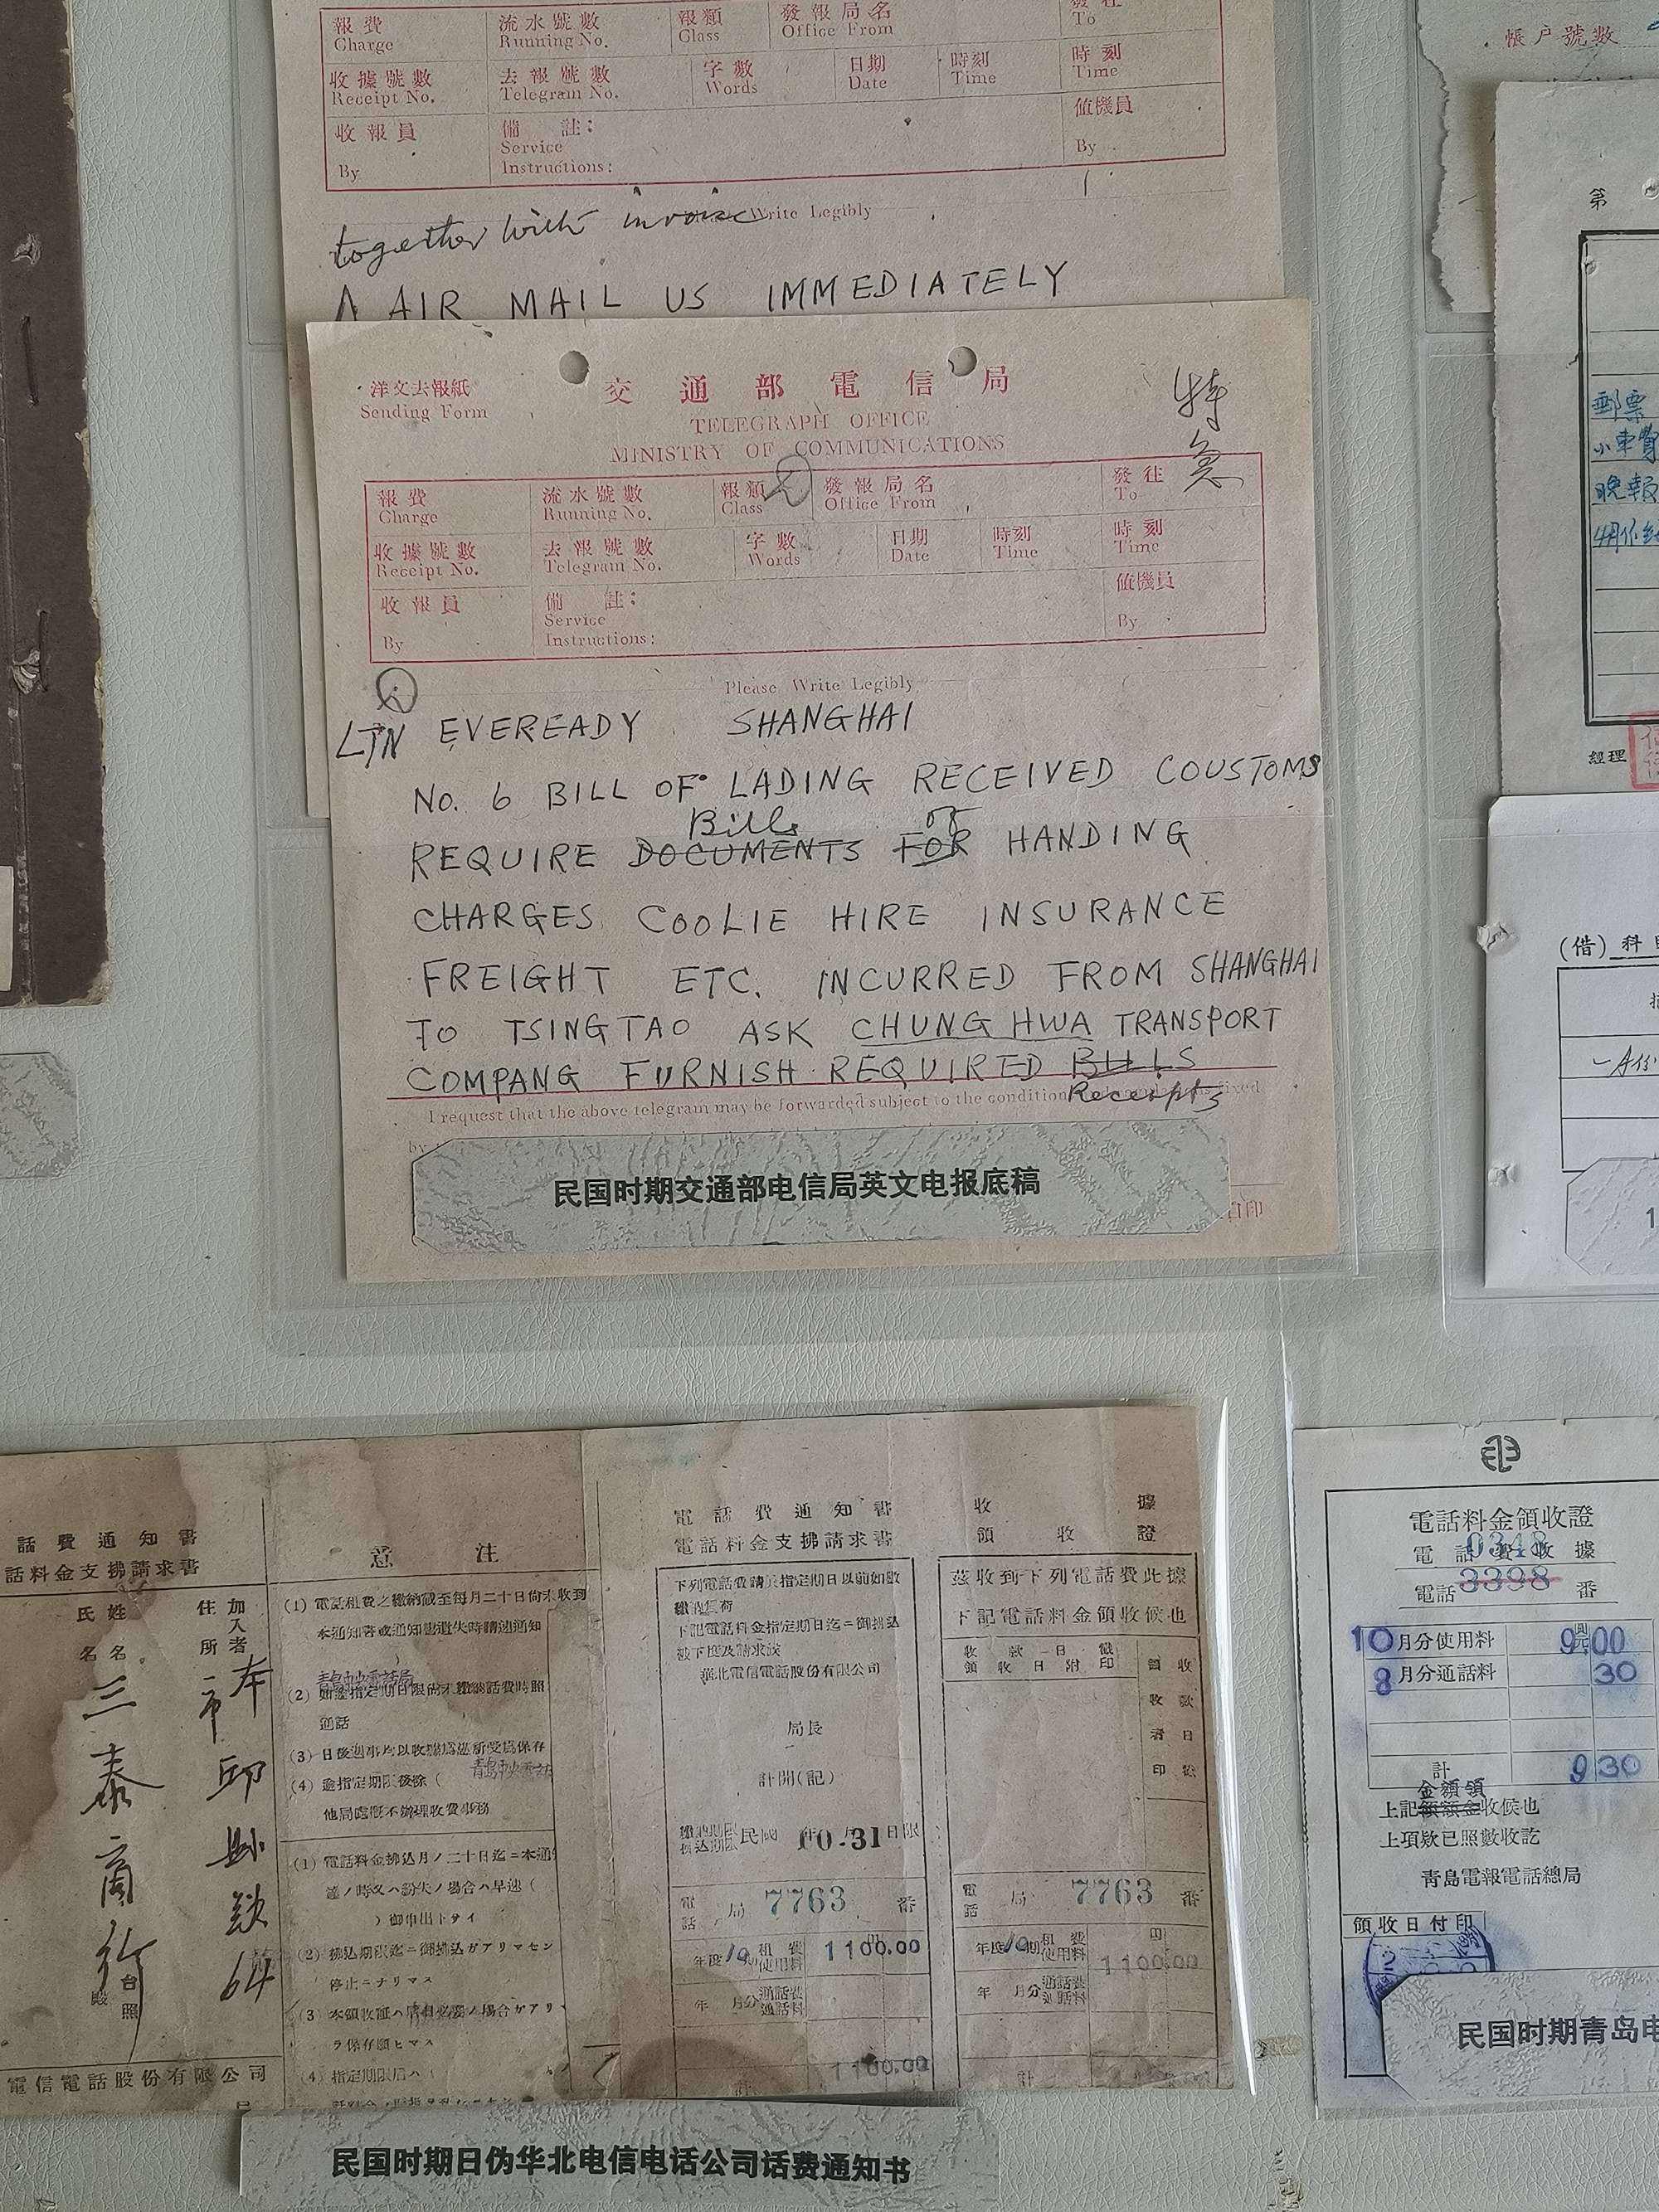 報費 流水號數 報類 發報局名 發往
Charge Running No. Class Office From To
收據號數 去報號數 字數 日期 時刻 時刻
Receipt No. Telegram No. Words Date Time Time
收報員 備註: 值機員
By Service Instructions: By
Write Legibly
together with invoice
∧ AIR MAIL US IMMEDIATELY
洋文去報紙
Sending Form
交通部電信局
TELEGRAPH OFFICE
MINISTRY OF COMMUNICATIONS
特急
報費 流水號數 報類 發報局名 發往
Charge Running No. Class Office From To
收據號數 去報號數 字數 日期 時刻 時刻
Receipt No. Telegram No. Words Date Time Time
收報員 備註: 值機員
By Service Instructions: By
Please Write Legibly
LTN EVEREADY SHANGHAI
NO. 6 BILL OF LADING RECEIVED COUSTOMS
Bills of
REQUIRE DOCUMENTS FOR HANDING
CHARGES COOLIE HIRE INSURANCE
FREIGHT ETC. INCURRED FROM SHANGHAI
TO TSINGTAO ASK CHUNG HWA TRANSPORT
COMPANG FURNISH REQUIRED BILLS
Receipts
I request that the above telegram may be forwarded subject to the condition
by
民国时期交通部电信局英文电报底稿
帳户號數
第
郵票
小車費
晚報
經理
(借) 科
話費通知書
話料金支拂請求書
加入者
住所
氏名
姓名
本市
三泰商行
台照
殿
64
電信電話股份有限公司
意注
(1) 電話租費之繳納截至每月二十日尚未收到
本通知書或通知書遺失時請速通知
(2)
通話
(3)
(4) 逾指定期限後除(
他局處概不辦理收費事務
(1) 電話料金拂込月ノ二十日迄ニ本通
達ノ時又ハ紛失ノ場合ハ早速(
)御申出下サイ
(2) 拂込期限迄ニ御拂込ガアリマセン
停止ニナリマス
(3)
ラ保存願ヒマス
(4) 指定期限后ハ(
電話費通知書
電話料金支拂請求書
下列電話費請於指定期日以前如數
下記電話料金指定期日迄ニ御拂込
華北電信電話股份有限公司
局長
計開(記)
民國 10.31 日限
電話 局 7763 番
年度 10 期 租費 使用料 1100.00
年 月分 通話費 通話料
1100.00
計
收據
領收證
茲收到下列電話費此據
下記電話料金領收候也
收款日戳
領收日附印
收款日戳
領收者印
電話 局 7763 番
年度 10 期 租費 使用料 1100.00
年 月分 通話費 通話料
計
民国时期日伪华北电信电话公司话费通知书
電話料金領收證
電話費收據
0348
電話 3398 番
10月分使用料 9.00
8月分通話料 30
計 9 30
金額領
上記領額金收候也
上項欵已照數收訖
青島電報電話總局
領收日付印
民国时期青岛电